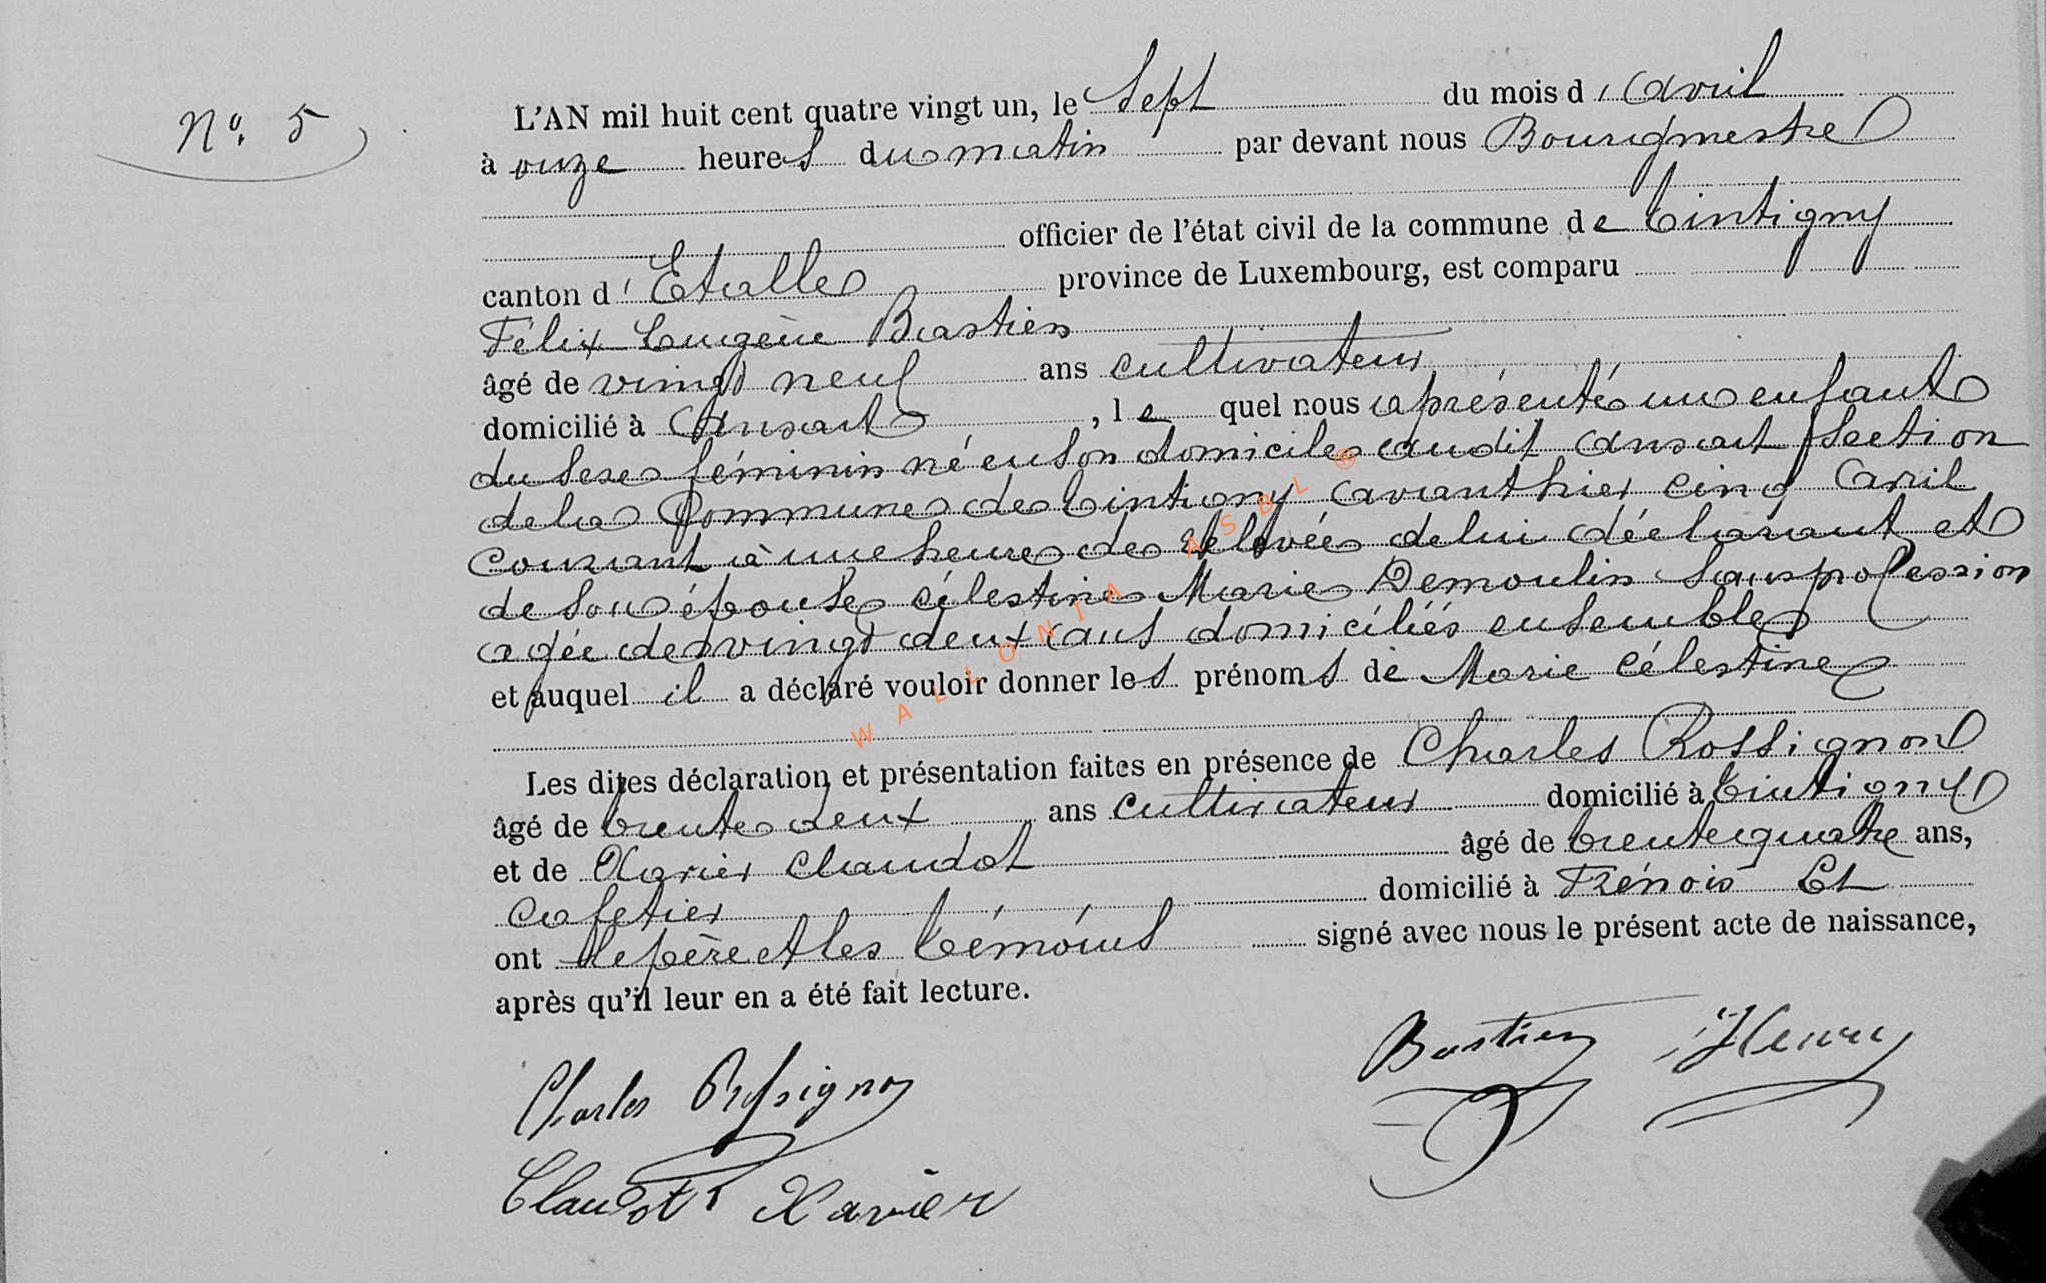 N° 5
L'AN mil huit cent quatre vingt un, le Sept du mois d'avril
à onze heures du matin par devant nous Bourgmestre
officier de l'état civil de la commune de Tintigny
canton d'Etalle province de Luxembourg, est comparu
Félix Eugène Bastien
âgé de vingt neuf ans cultivateur
domicilié à Ansart, lequel nous a présenté un enfant
du sexe féminin né en son domicile audit Ansart section
de la Commune de Tintigny avanthier cinq avril
courant à une heure de relevée de lui déclarant et
de son épouse Célestine Marie Demoulin sans profession
agée de vingt deux ans domiciliés ensemble
et auquel il a déclaré vouloir donner les prénoms de Marie Célestine
Les dites déclaration et présentation faites en présence de Charles Rossignon
âgé de trente deux ans cultivateur domicilié à Tintigny
et de Xavier Claudot âgé de trente quatre ans,
cafetier domicilié à Frénois Et
ont le père et les témoins signé avec nous le présent acte de naissance,
après qu'il leur en a été fait lecture.
Bastien Henry
Charles Rossignon
Claudot Xavier
WALLONIA ASBL ®